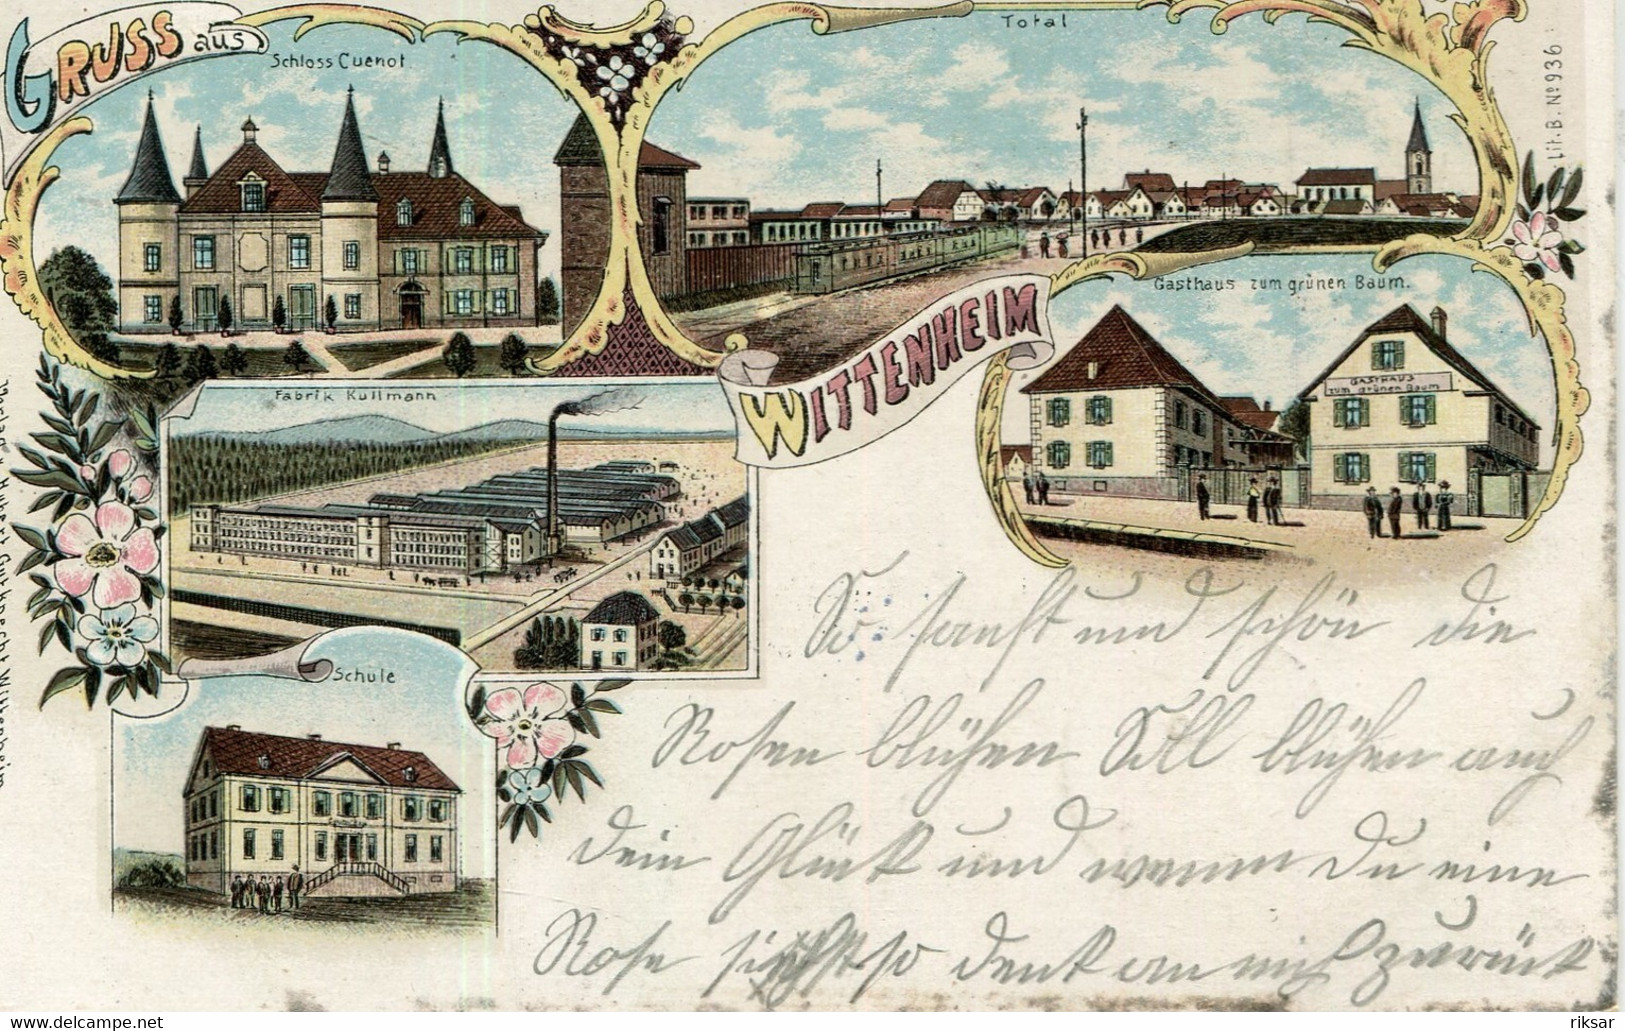 Gruss aus
Schloss Cuenot.
Total
Lit. B. No 936
WITTENHEIM
Gasthaus zum grünen Baum.
GASTHAUS
zum grünen Baum
Fabrik Kullmann
Schule
Verlag v. Hubert Gutknecht Wittenheim
So sanft und schön die
Rosen blühen Soll blühen auch
dein Glück und wenn Du eine
Rose siehst so denk an mich zurück
riksar
www.delcampe.net